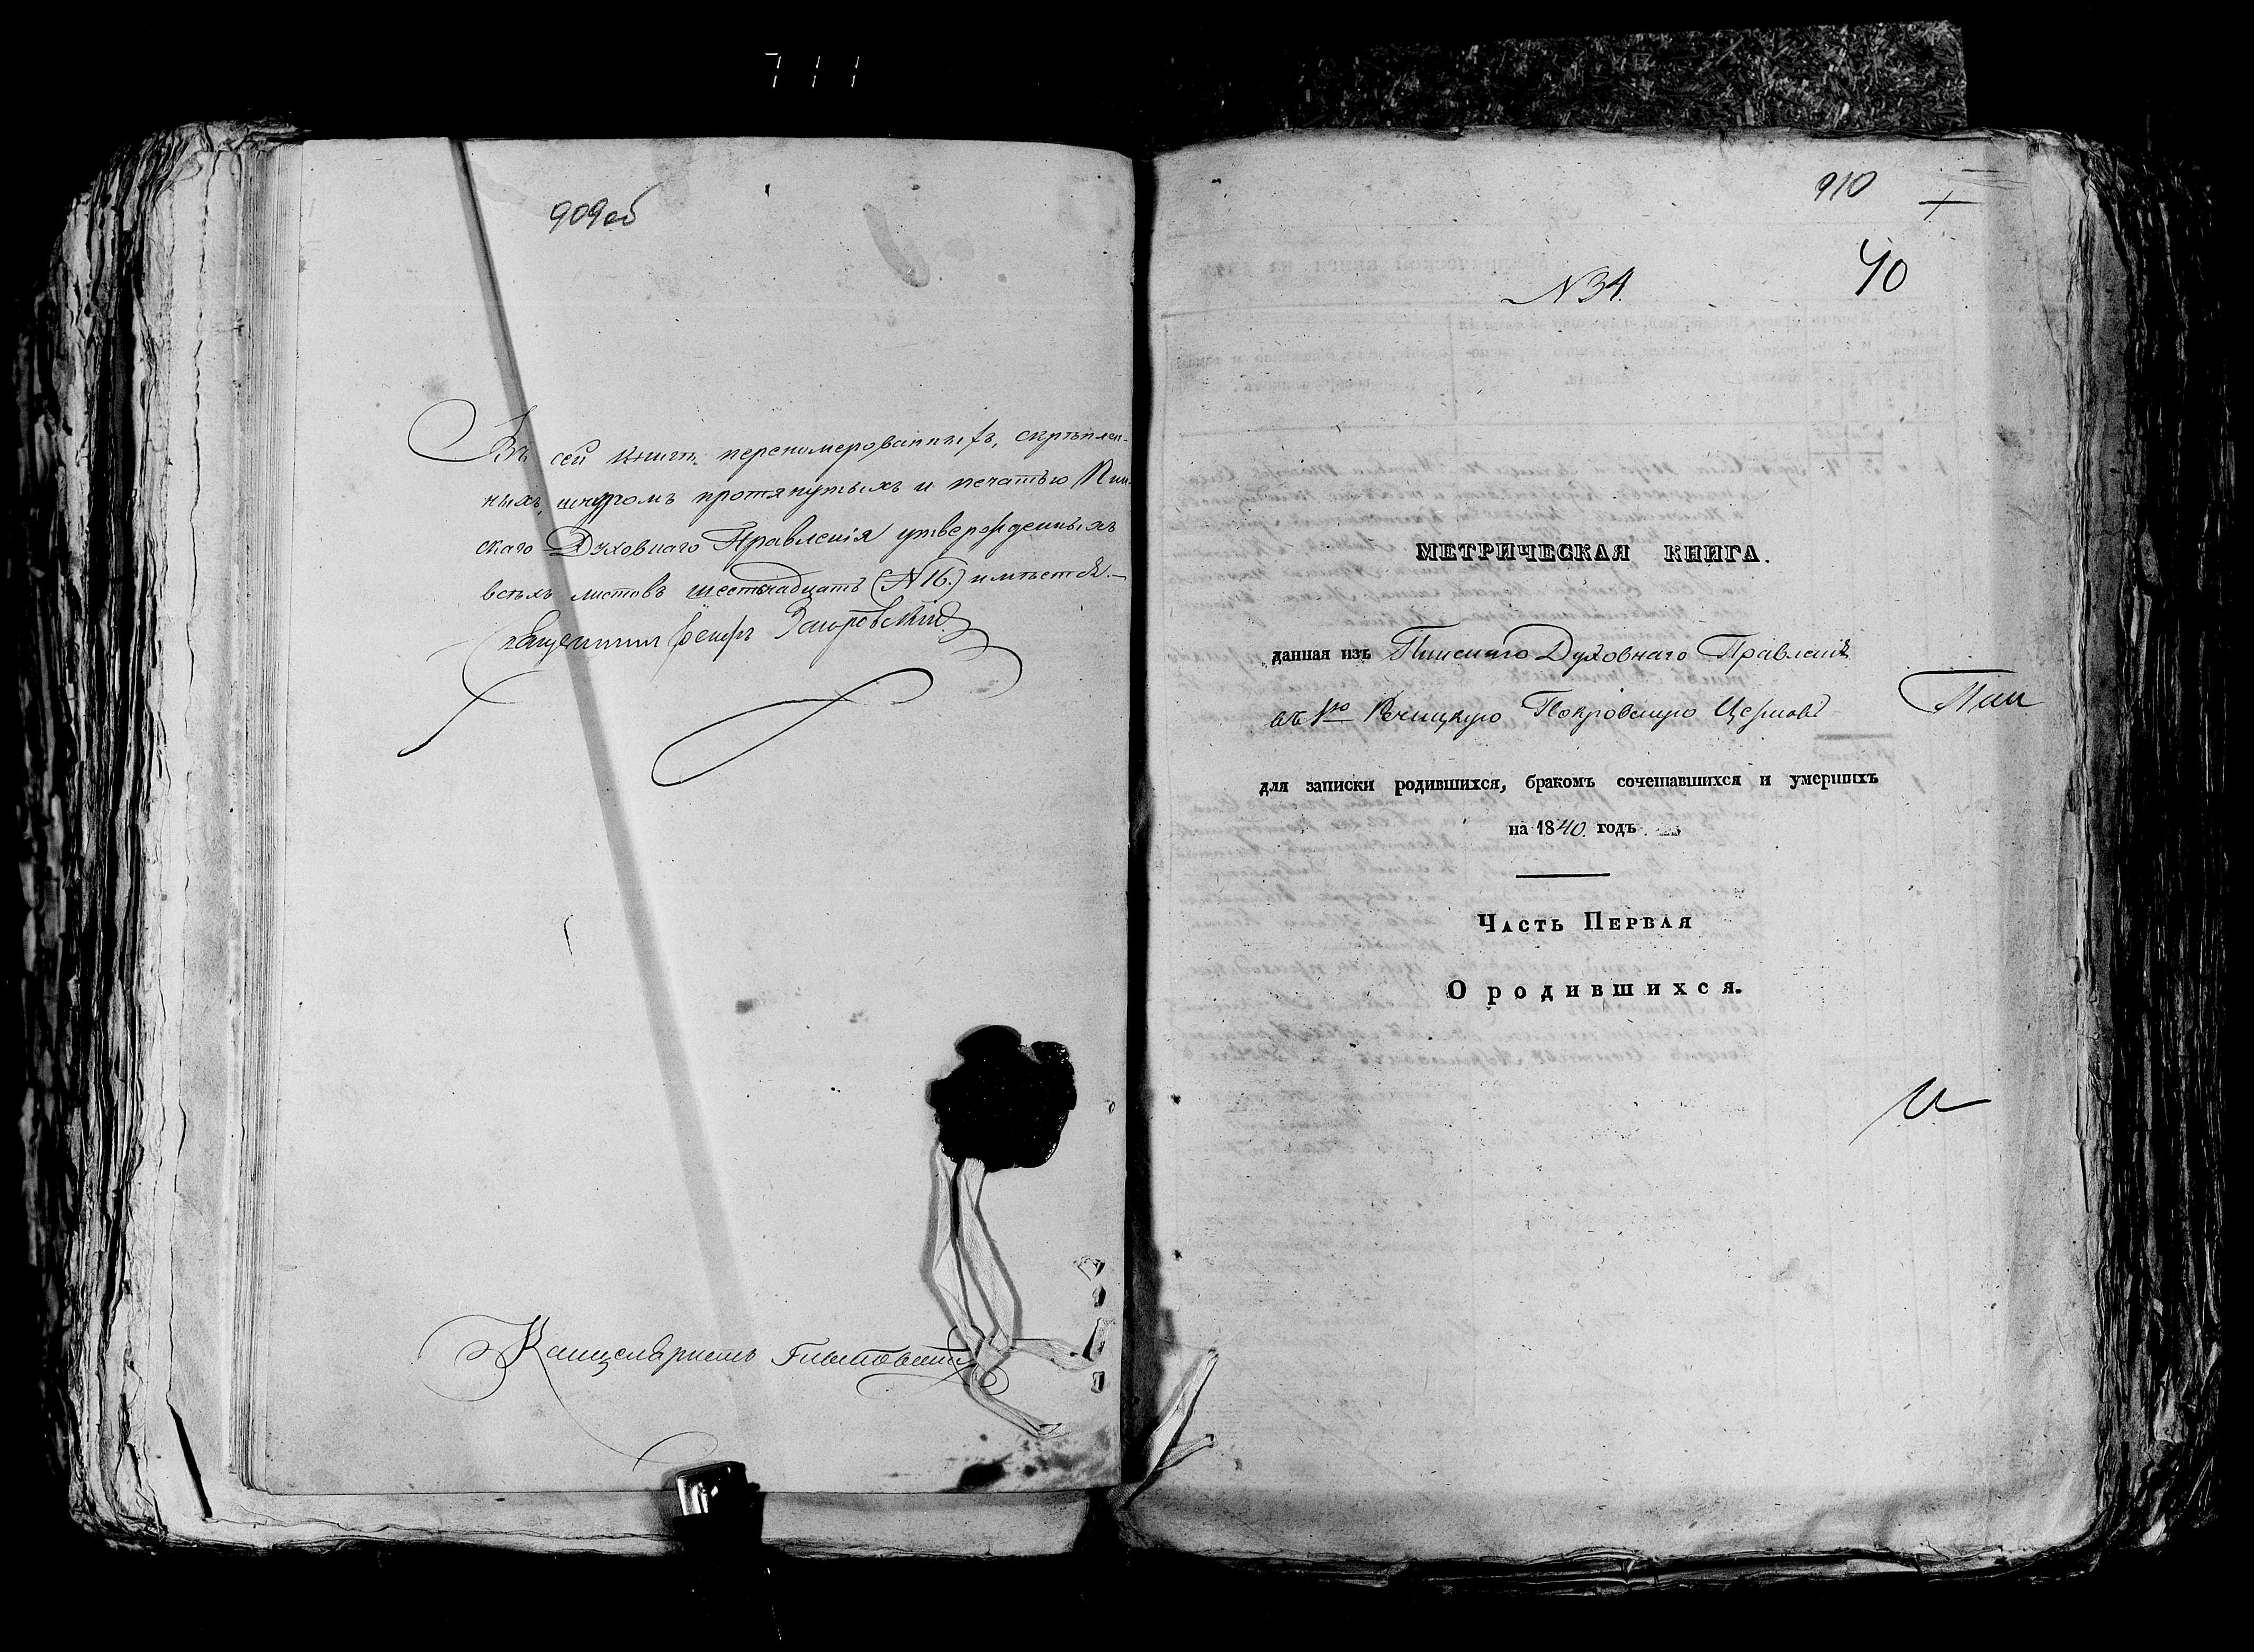 711
909об
Въ сей книгѣ переномерованныхъ, скрѣплен-
ныхъ, шнуромъ протянутыхъ и печатью Пин-
скаго Духовнаго Правленія утвержденныхъ
всѣхъ листовъ шестнадцать (N 16.) имѣется.—
Канцеляристъ
910
40
N 34.
МЕТРИЧЕСКАЯ КНИГА.
данная изъ Пинскаго Духовнаго Правленія
въ 1ю Речицкую Покровскую Церковь
Пин
для записки родившихся, бракомъ сочетавшихся и умершихъ
на 1840. годъ.
Часть Первая
О родившихся.